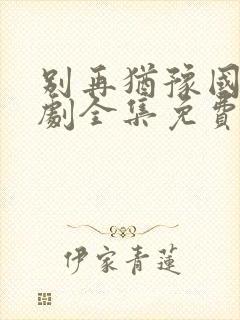 別再猶豫國
劇全集免費
伊家青蓮